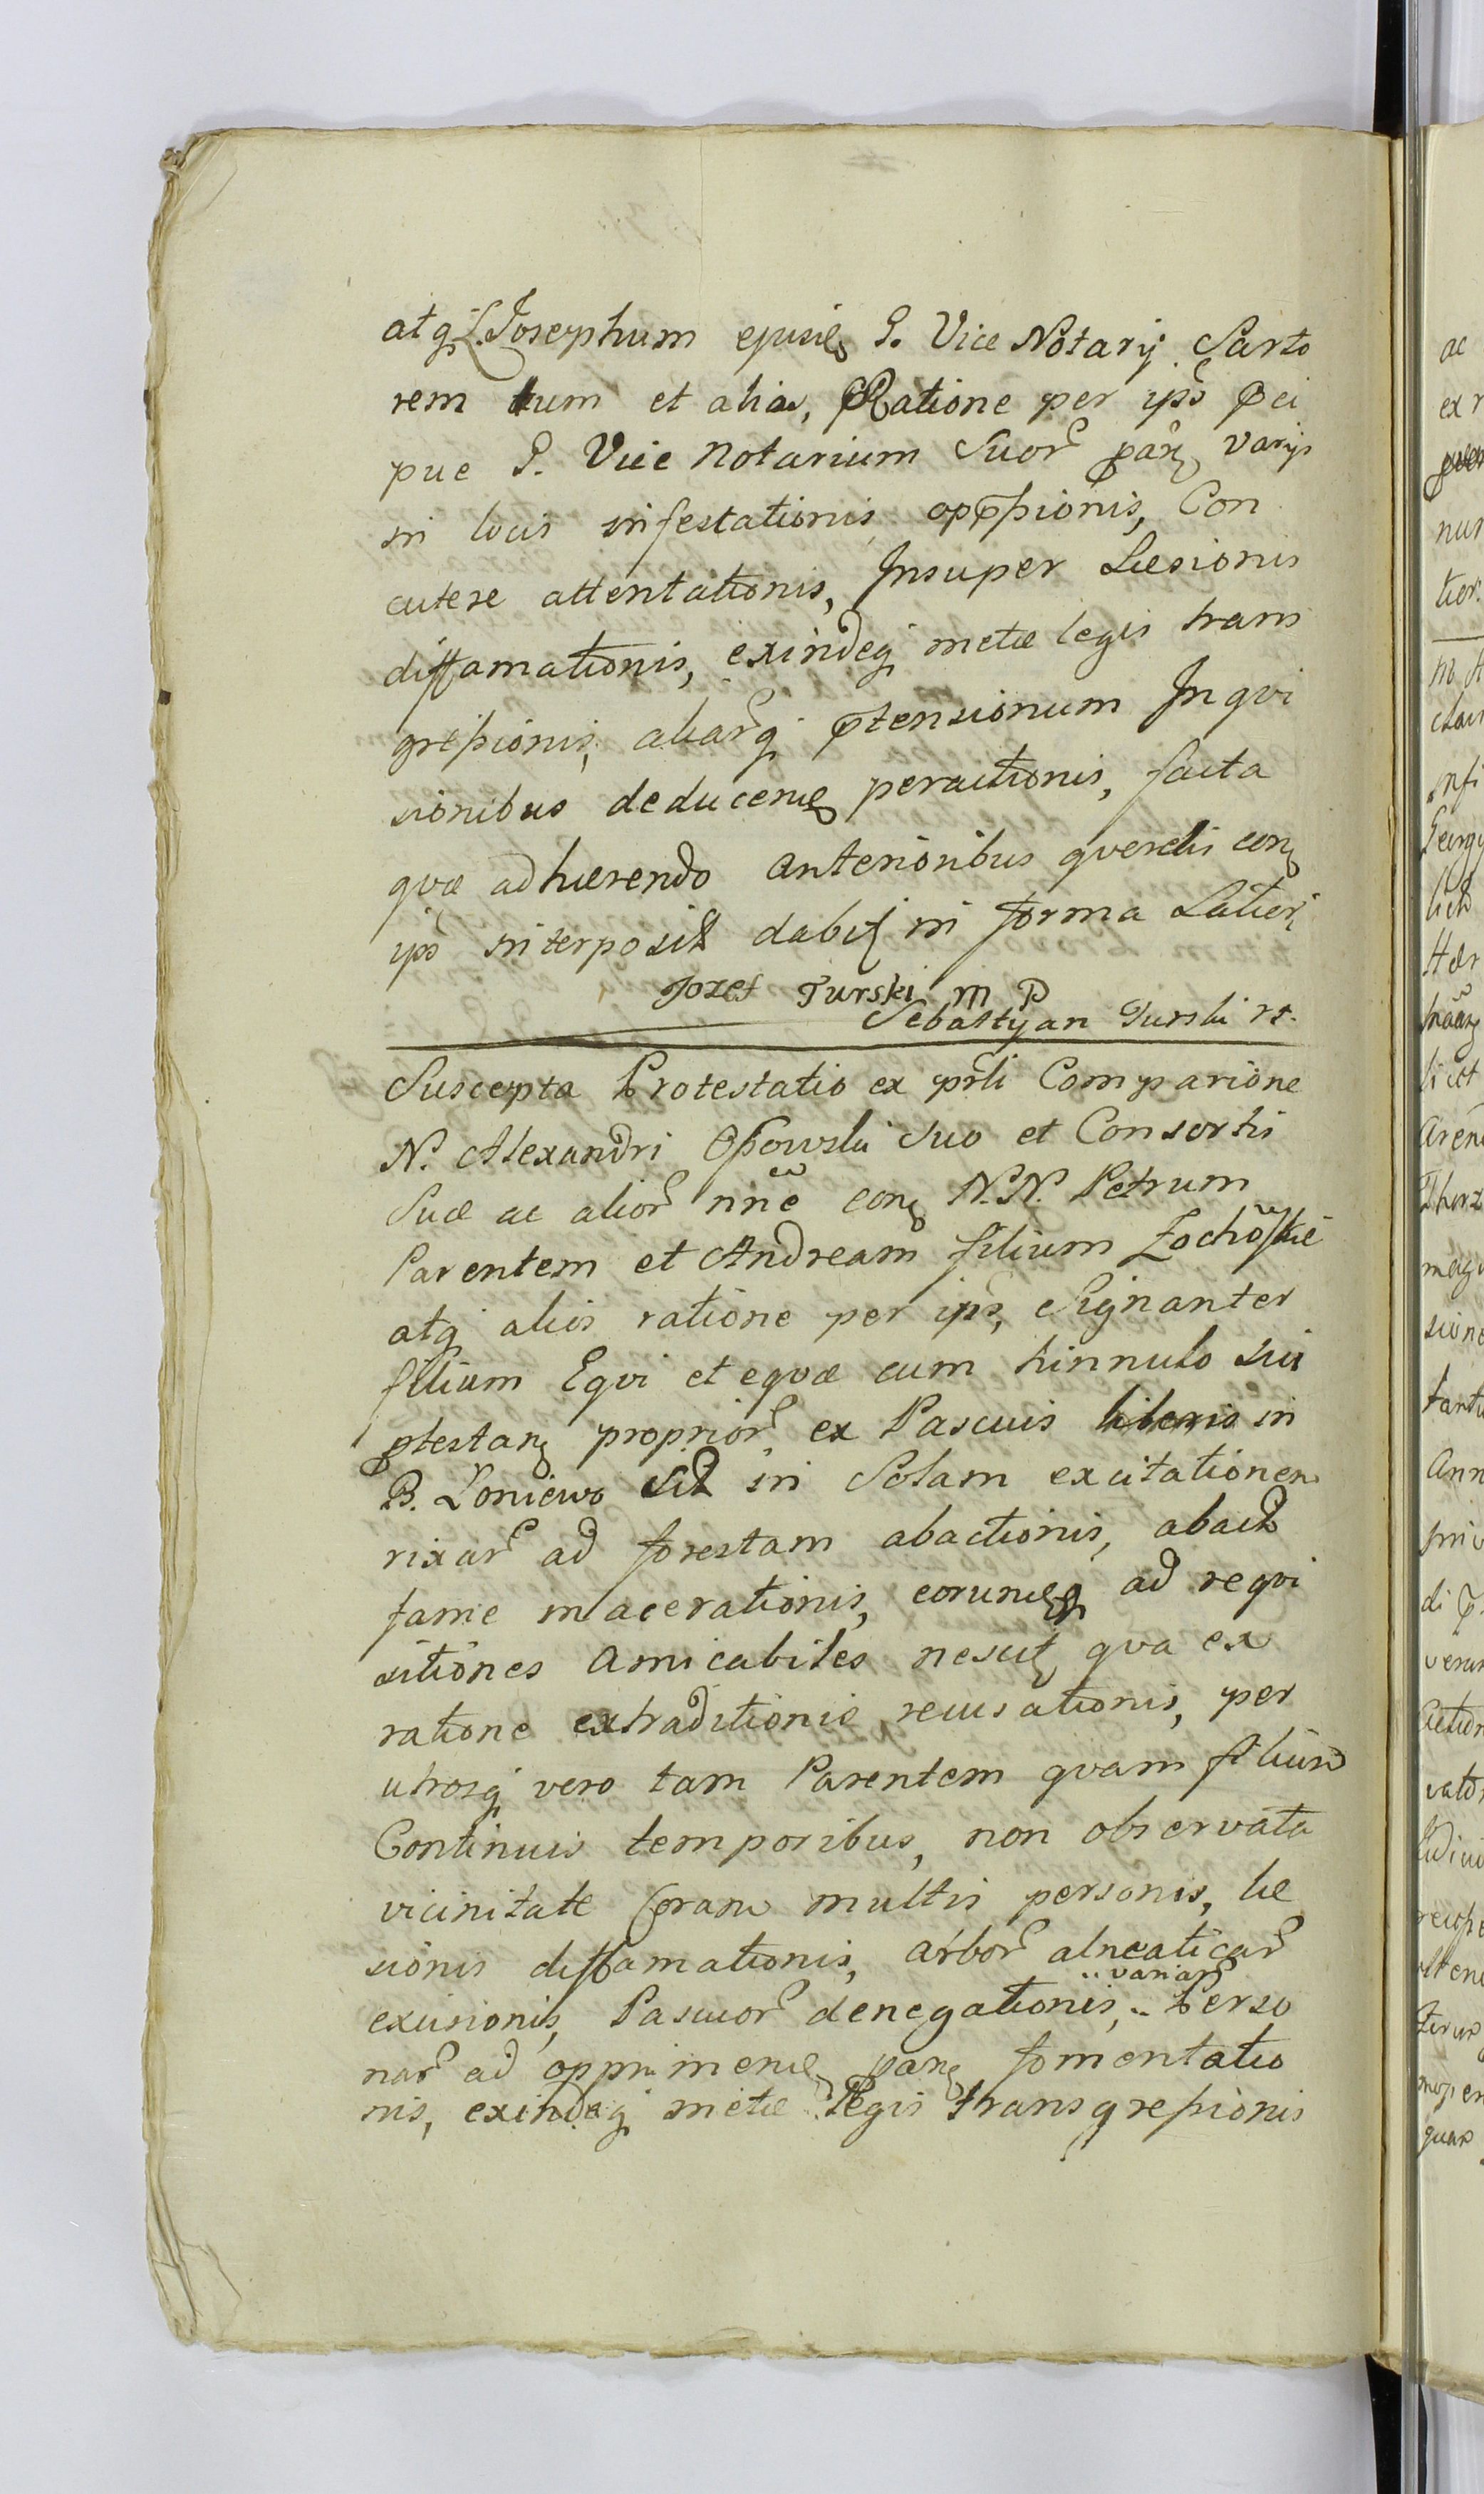 atq L. Josephum ejusd G. Vice Notarij Sarto
rem tum et alios, Ratione per ips prci
pue G. Vice Notarium Suor part varijs
in locis infestationis opprssionis, Con
cutere attentationis, Insuper Læsionis
diffamationis, exindeq metæ legis trans
gressionis, aliarq prtensionum Inqvi
sionibus deducend peractionis, facta
qvæ adhærendo anterioribus qverelis con
ips interposit dabit in forma Latiori
Jozef Turski m p
Sebastyan Turski
Suscepta Protestatio ex prsti Comparione
N. Alexandri Ossowski Suo et Consortis
Suæ ac alior nne con N.N. Petrum
Parentem et Andream filium Zochowskie
atq alios ratione per ips, Signanter
filium Eqvi et eqvæ cum hinnulo sui
ptestan proprior ex Pascuis liberis in
B. Loniewo sit in Solam excitationem
rixar ad forestam abactionis, abact
fame macerationis, eorumdq ad reqvi
sitiones amicabiles nescit qva ex
ratione extraditionis recusationis, per
utrosq vero tam Parentem qvam filium
Continuis temporibus, non observata
vicinitate Coram multis personis, læ
sionis diffamationis, arbor alneaticar
excisionis, Pascuor denegationis, variar Perso
nar ad opprimend part fomentatio
nis, exindeq metæ Legis transgressionis